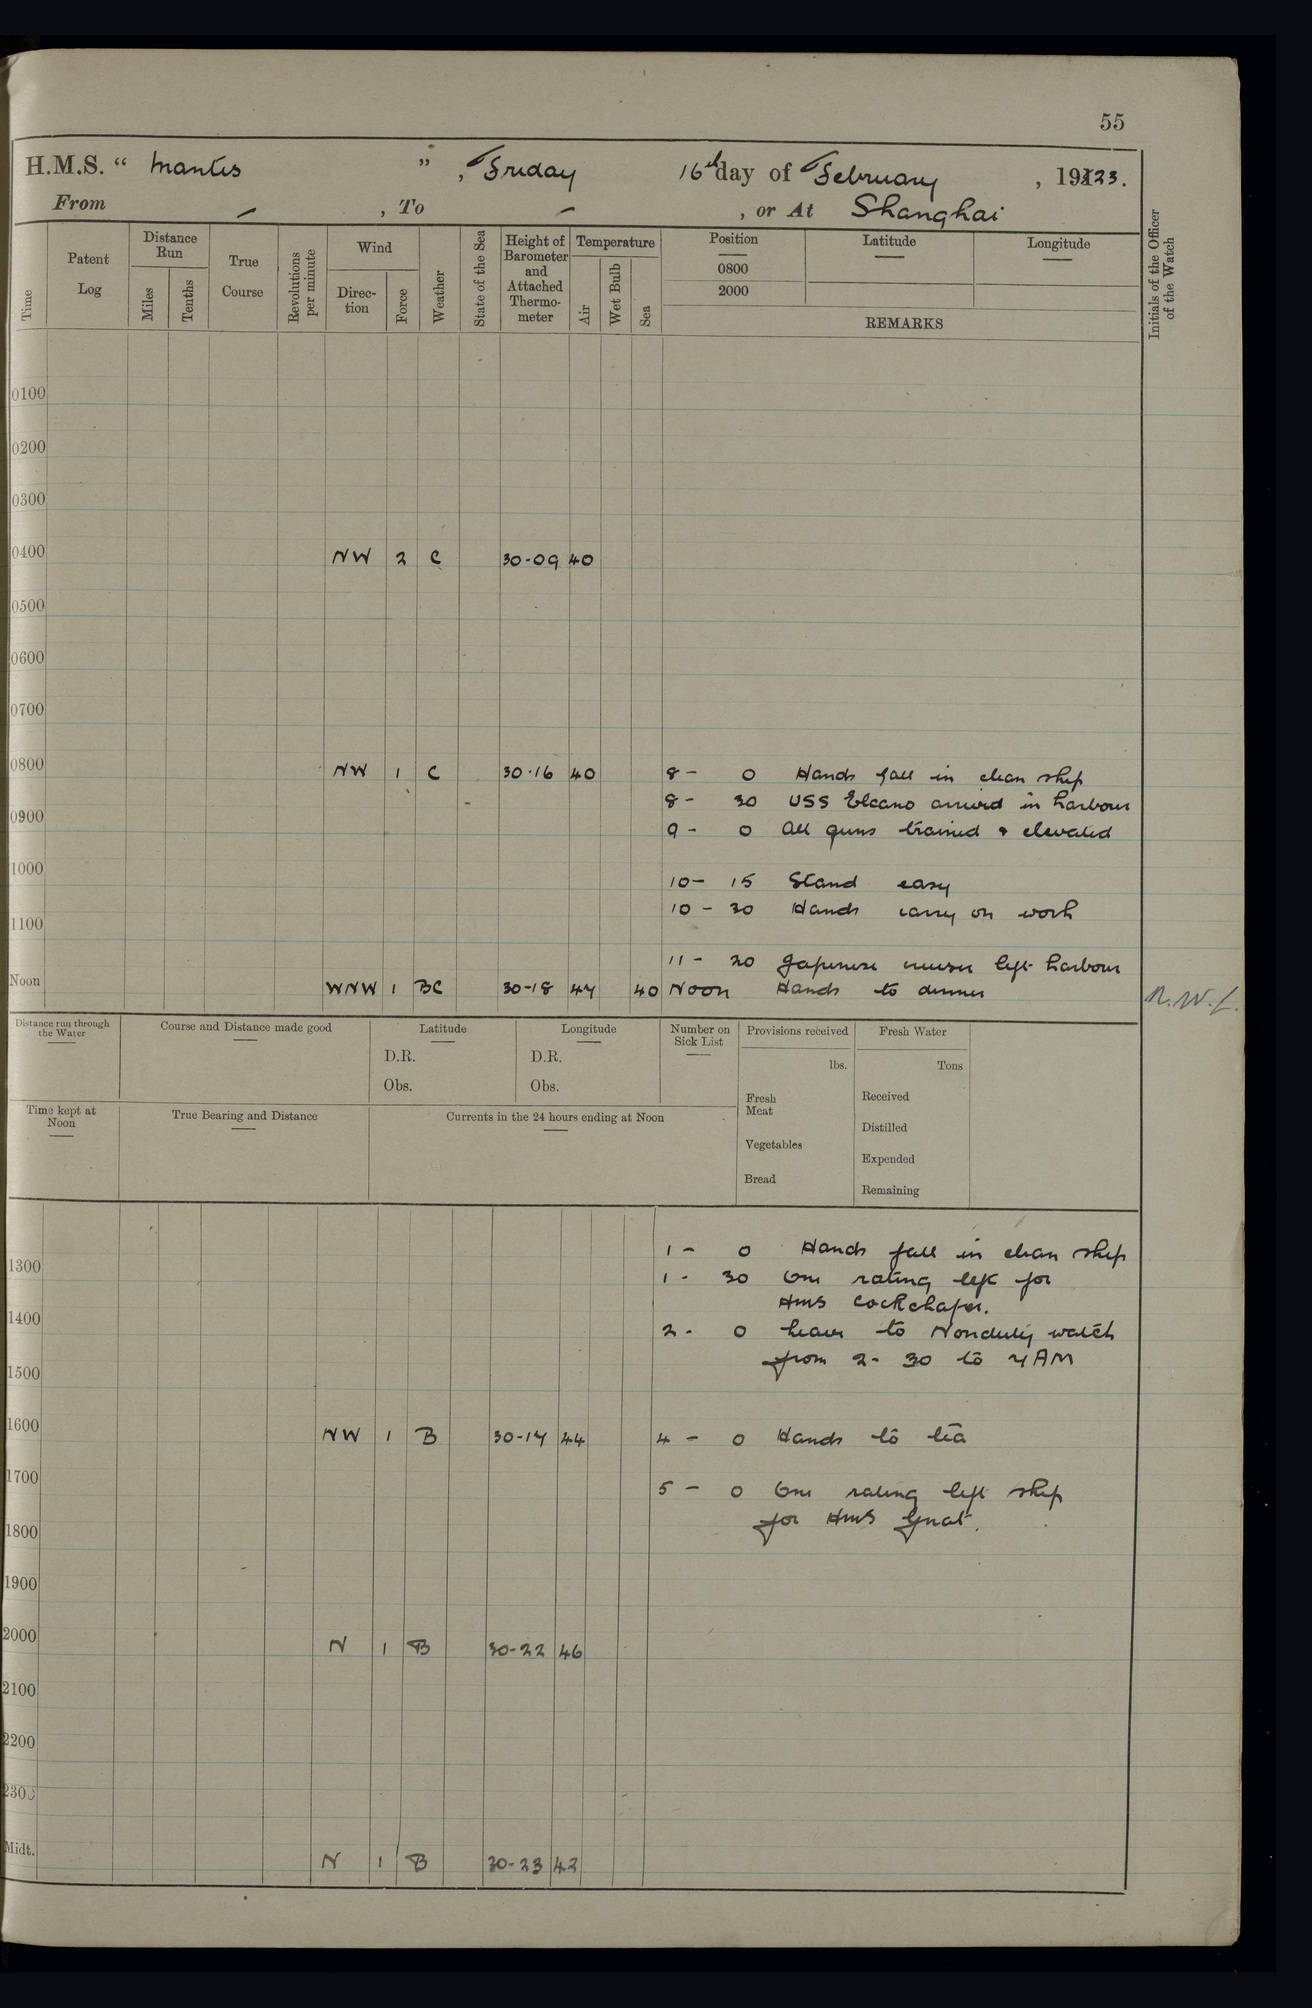 55
H.M.S. “ Mantis ” , Friday 16th day of February , 1923.
From – , To – , or At Shanghai
Time
Patent Log
Distance Run
Miles
Tenths
True Course
Revolutions per minute
Wind
Direction
Force
Weather
State of the Sea
Height of Barometer and Attached Thermometer
Temperature
Air
Wet Bulb
Sea
Position
Latitude
Longitude
0800
2000
REMARKS
Initials of the Officer of the Watch
0100
0200
0300
0400 NW 2 C 30-09 40
0500
0600
0700
0800 NW 1 C 30·16 40 8 – 0 Hands fall in clean ship
8 – 30 USS Elcano arrived in harbour
0900 9 – 0 All guns trained & elevated
1000 10 – 15 Stand easy
10 – 30 Hands carry on work
1100
11 – 20 Japenese cruiser left harbour
Noon WNW 1 BC 30-18 47 40 Noon Hands to dinner
Distance run through the Water
Course and Distance made good
Latitude
D.R.
Obs.
Longitude
D.R.
Obs.
Number on Sick List
Provisions received
lbs.
Fresh Meat
Vegetables
Bread
Fresh Water
Tons
Received
Distilled
Expended
Remaining
Time kept at Noon
True Bearing and Distance
Currents in the 24 hours ending at Noon
1 – 0 Hands fall in clean ship
1300 1 - 30 One rating left for
HMS Cockchafer.
1400 2 - 0 Leave to Nonduty watch
from 2 - 30 to 7 AM
1500
1600 NW 1 B 30-17 44 4 – 0 Hands to tea
1700 5 – 0 One rating left ship
for HMS Gnat.
1800
1900
2000 N 1 B 30-22 46
2100
2200
2300
Midt. N 1 B 30-23 42